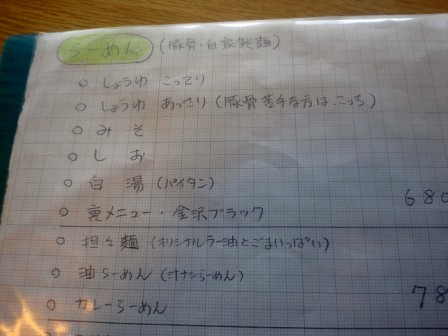 らーめん (豚骨・自家製麺)
○ しょうゆ こってり
○ しょうゆ あっさり (豚骨苦手な方は、こっち)
○ みそ
○ しお
○ 白湯 (パイタン)
680
○ 裏メニュー・金沢ブラック
○ 担々麺 (オリジナルラー油とごまいっぱい)
○ 油らーめん (オナシらーめん)
78
○ カレーらーめん